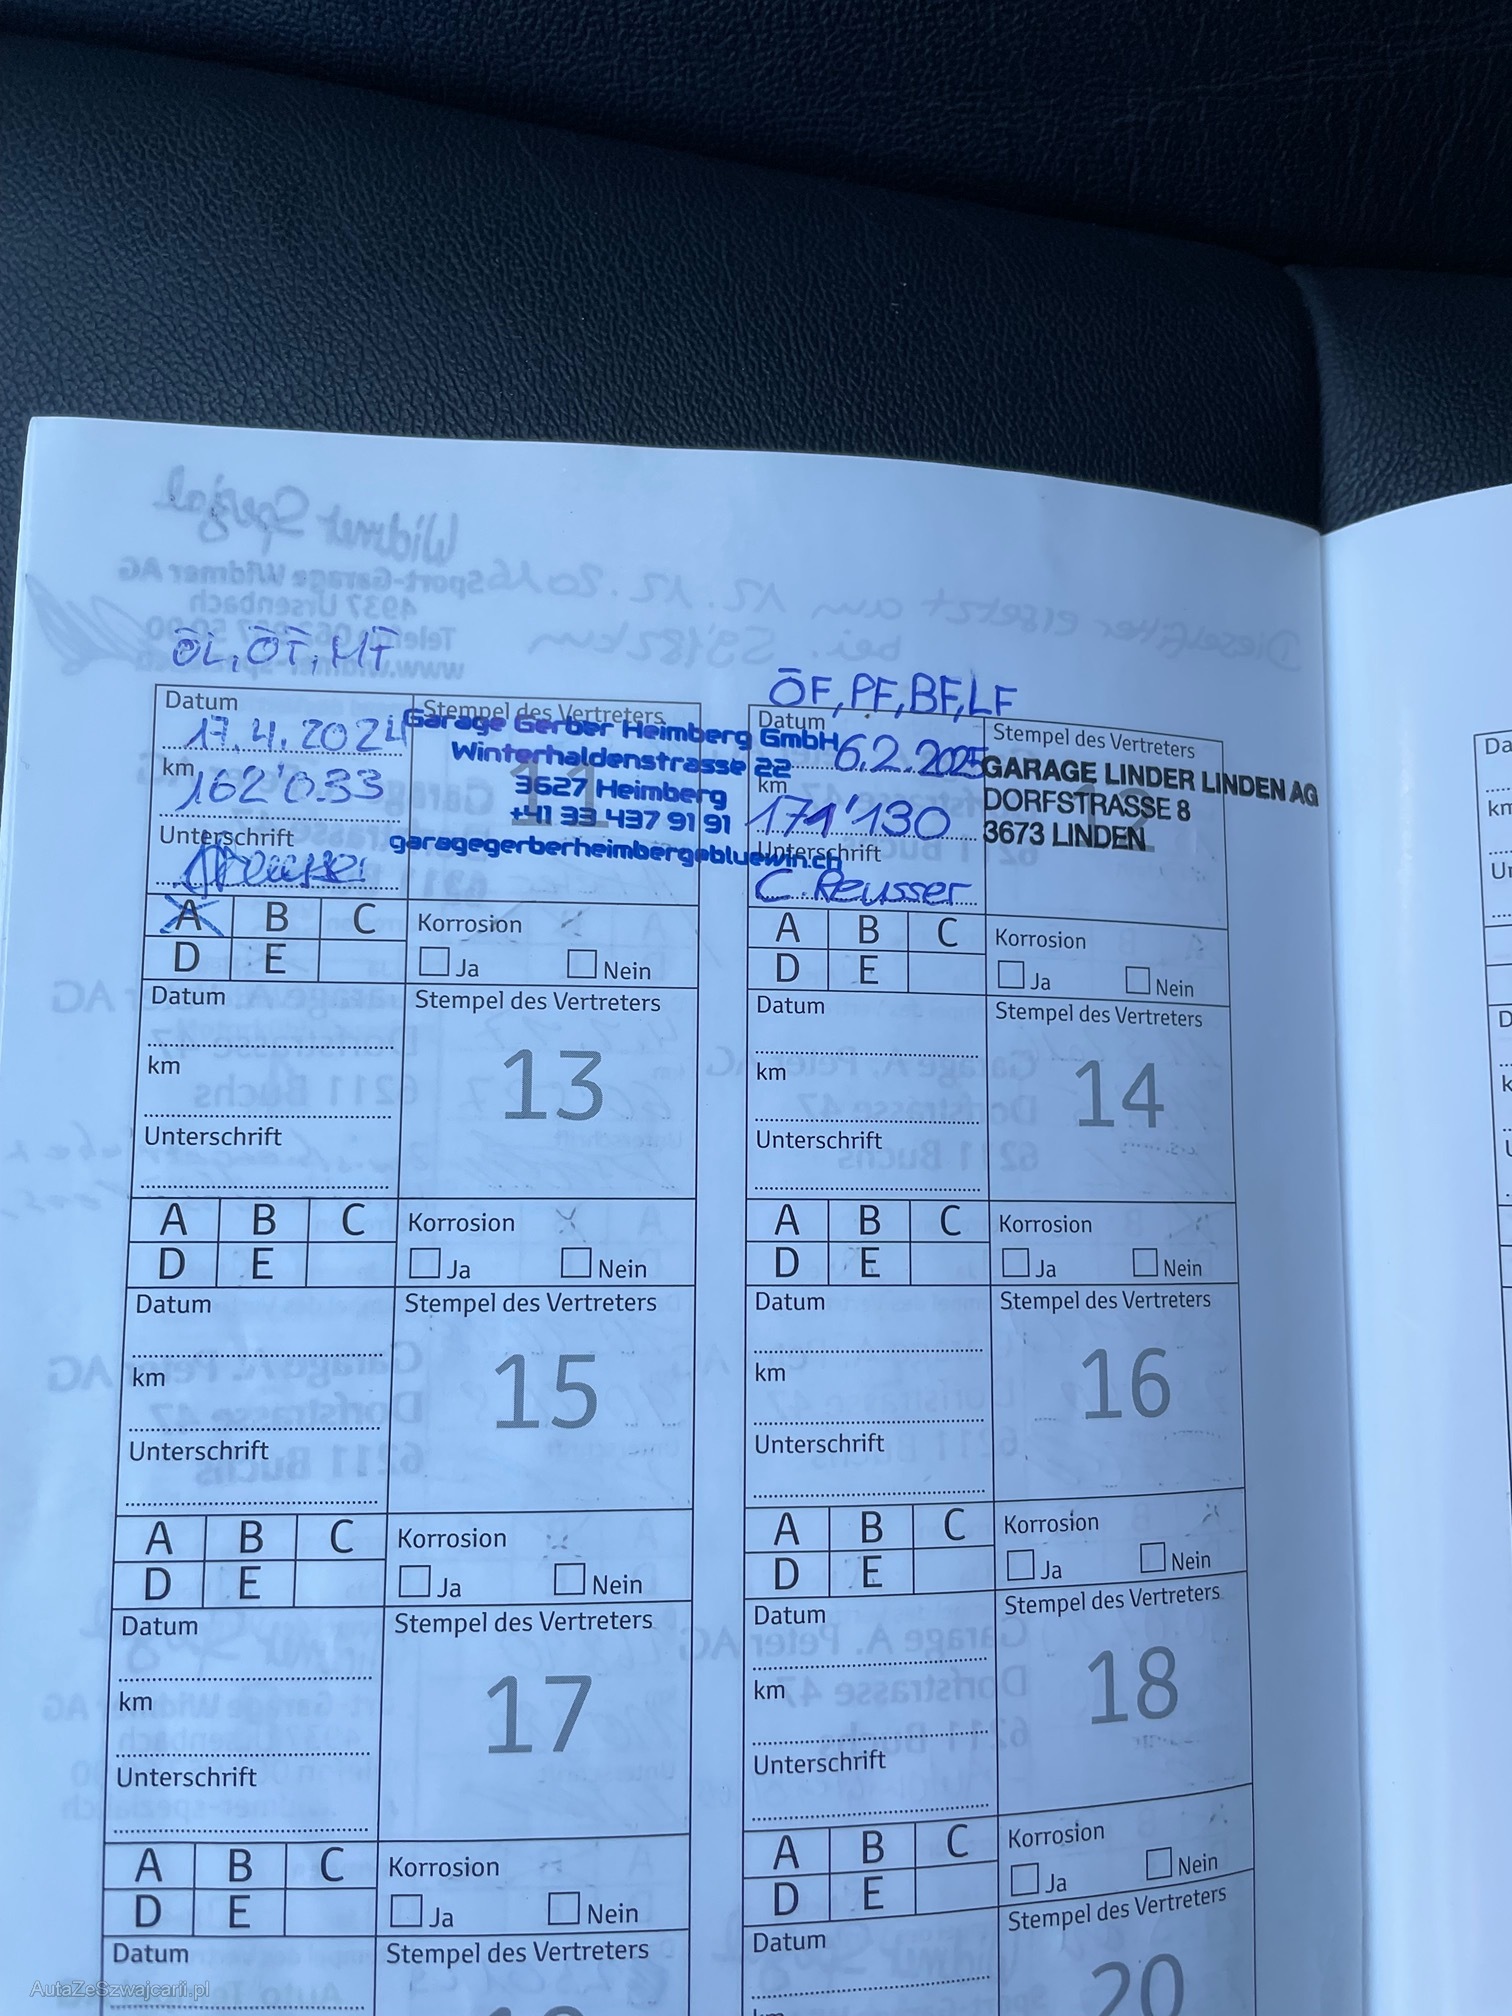 ÖL, ÖT, MT
Datum
17.4.2024
km
162'033
Unterschrift
Stempel des Vertreters
11
Garage Gerber Heimberg GmbH
Winterhaldenstrasse 22
3627 Heimberg
+41 33 437 91 91
A B C
D E
Korrosion
Ja Nein
ÖF, PF, BF, LF
Datum
6.2.2025
km
171'130
Unterschrift
C. Reusser
Stempel des Vertreters
12
GARAGE LINDER LINDEN AG
DORFSTRASSE 8
3673 LINDEN
A B C
D E
Korrosion
Ja Nein
Datum
km
Unterschrift
Stempel des Vertreters
13
A B C
D E
Korrosion
Ja Nein
Datum
km
Unterschrift
Stempel des Vertreters
14
A B C
D E
Korrosion
Ja Nein
Datum
km
Unterschrift
Stempel des Vertreters
15
A B C
D E
Korrosion
Ja Nein
Datum
km
Unterschrift
Stempel des Vertreters
16
A B C
D E
Korrosion
Ja Nein
Datum
km
Unterschrift
Stempel des Vertreters
17
A B C
D E
Korrosion
Ja Nein
Datum
km
Unterschrift
Stempel des Vertreters
18
A B C
D E
Korrosion
Ja Nein
Datum
Stempel des Vertreters
Datum
Stempel des Vertreters
20
AutaZeSzwajcarii.pl